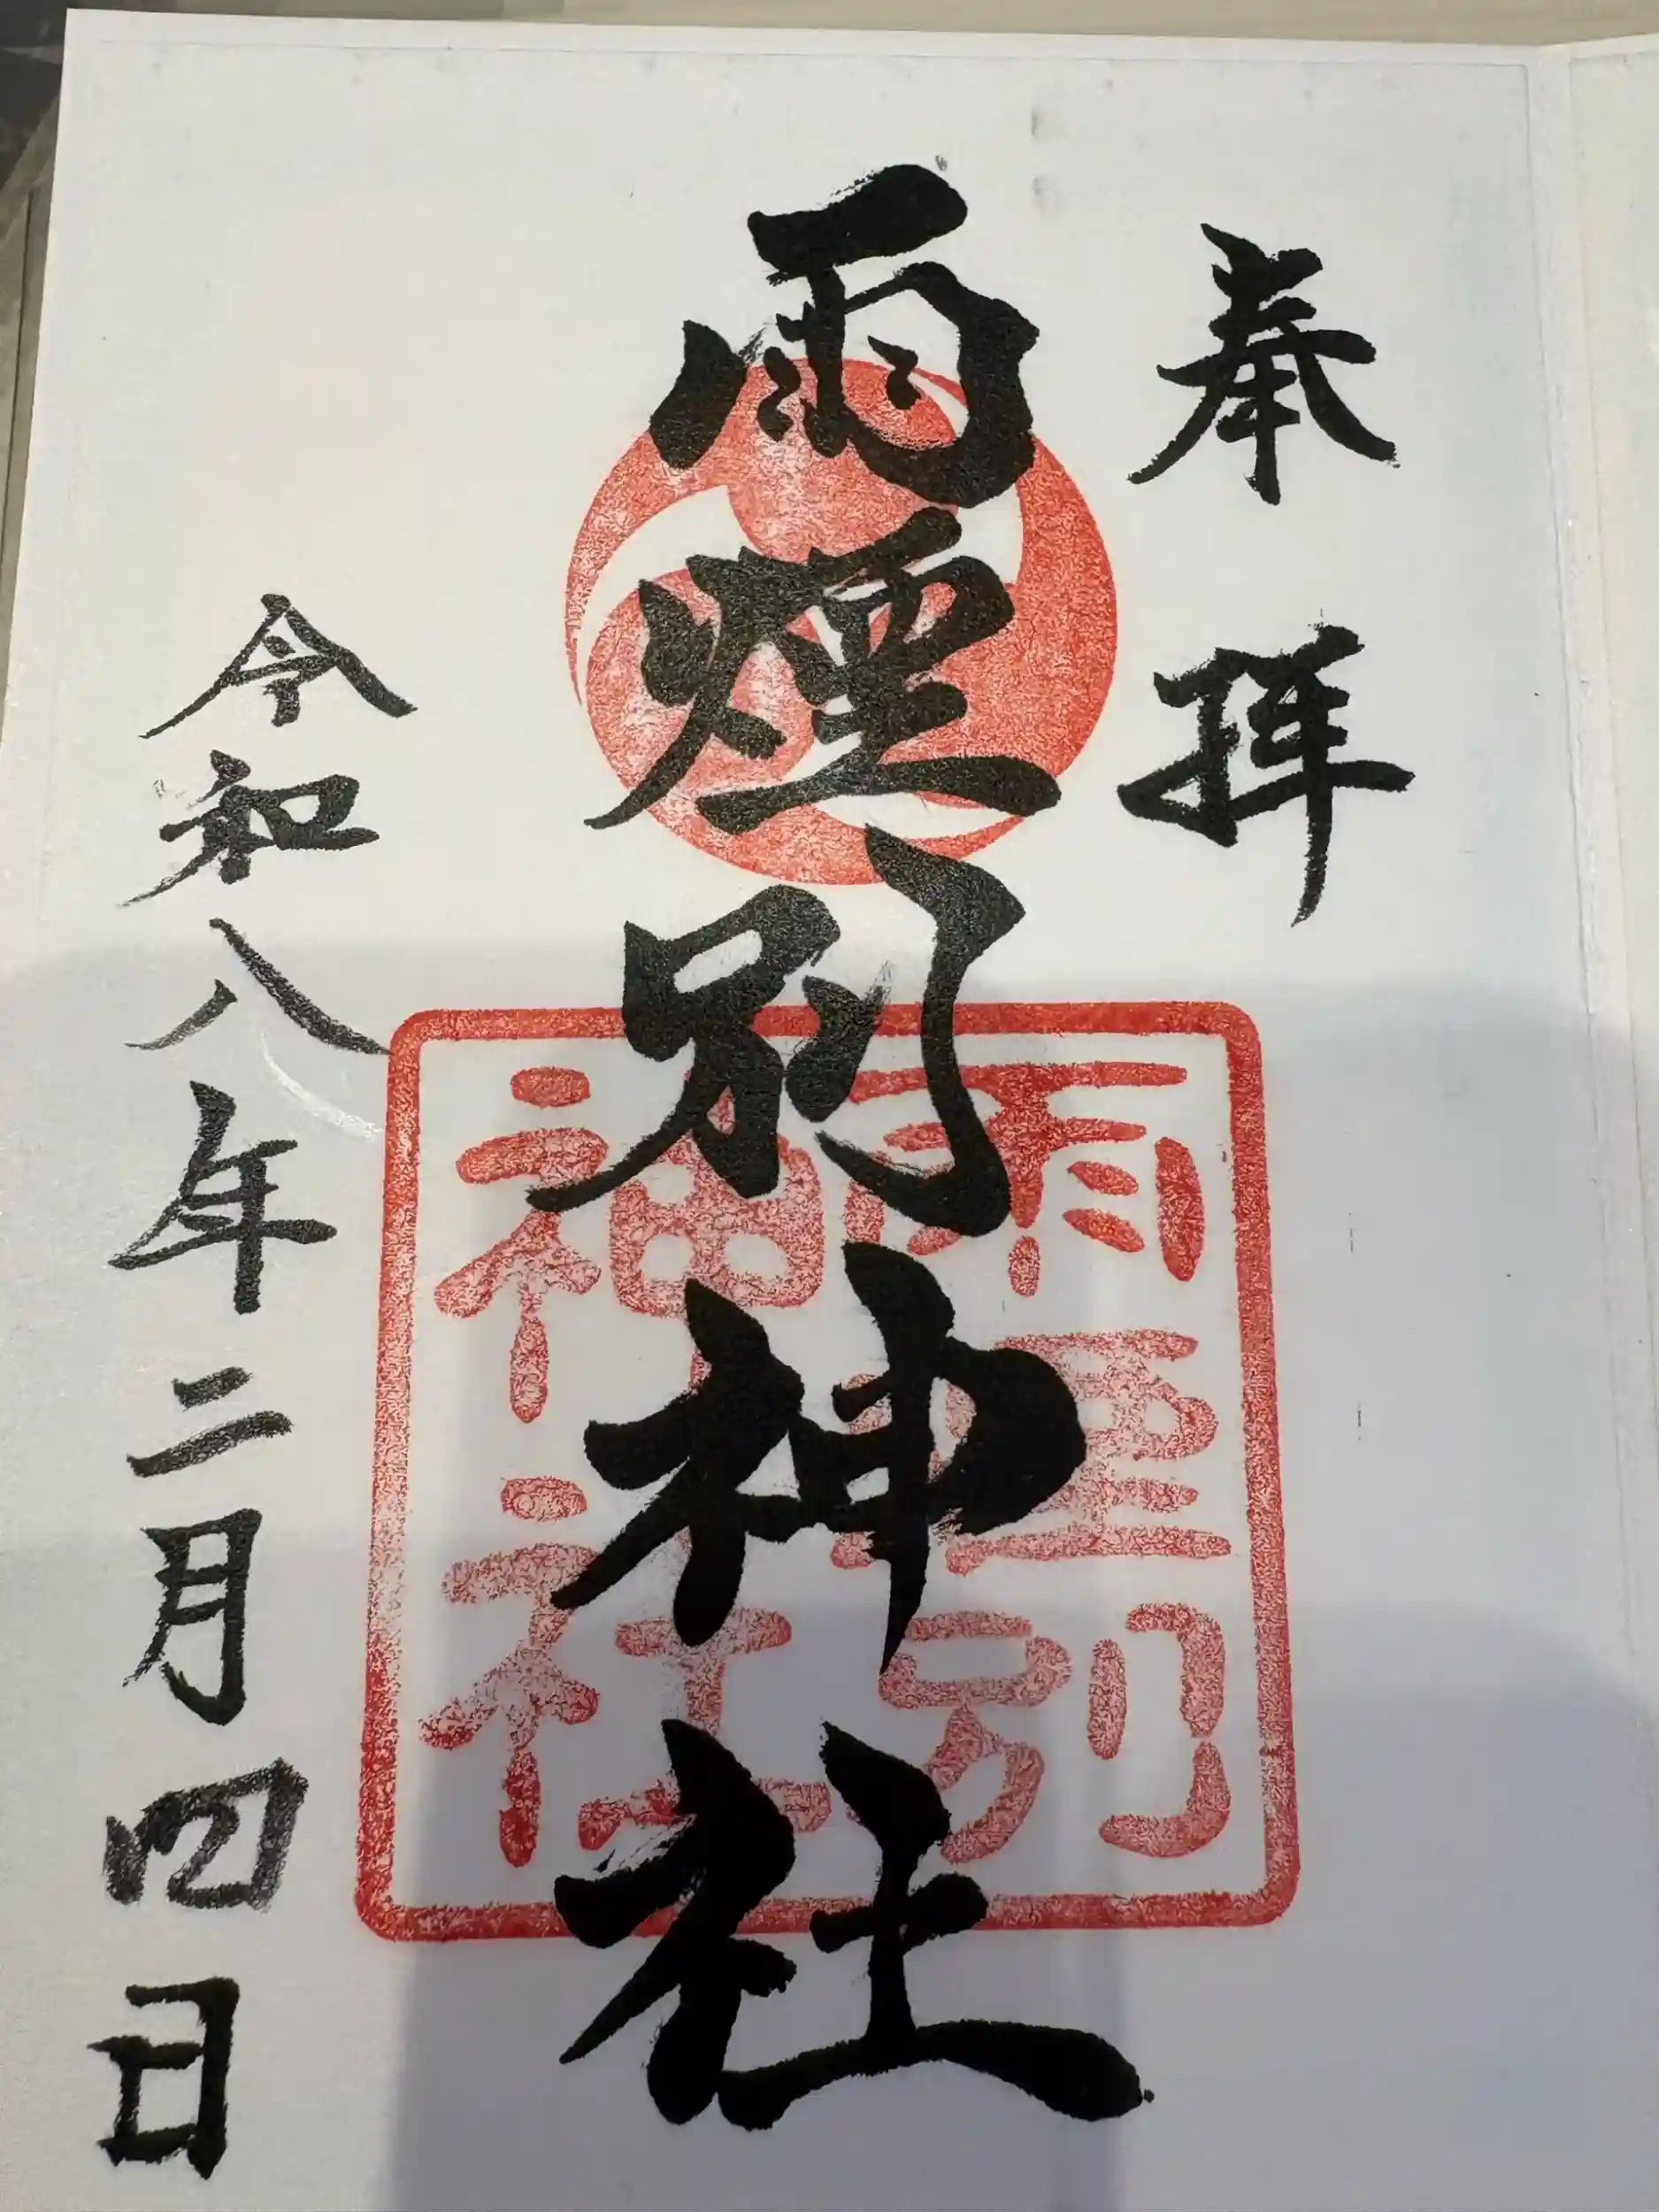 奉拝
雨煙別神社
雨煙別神社
令和八年二月四日